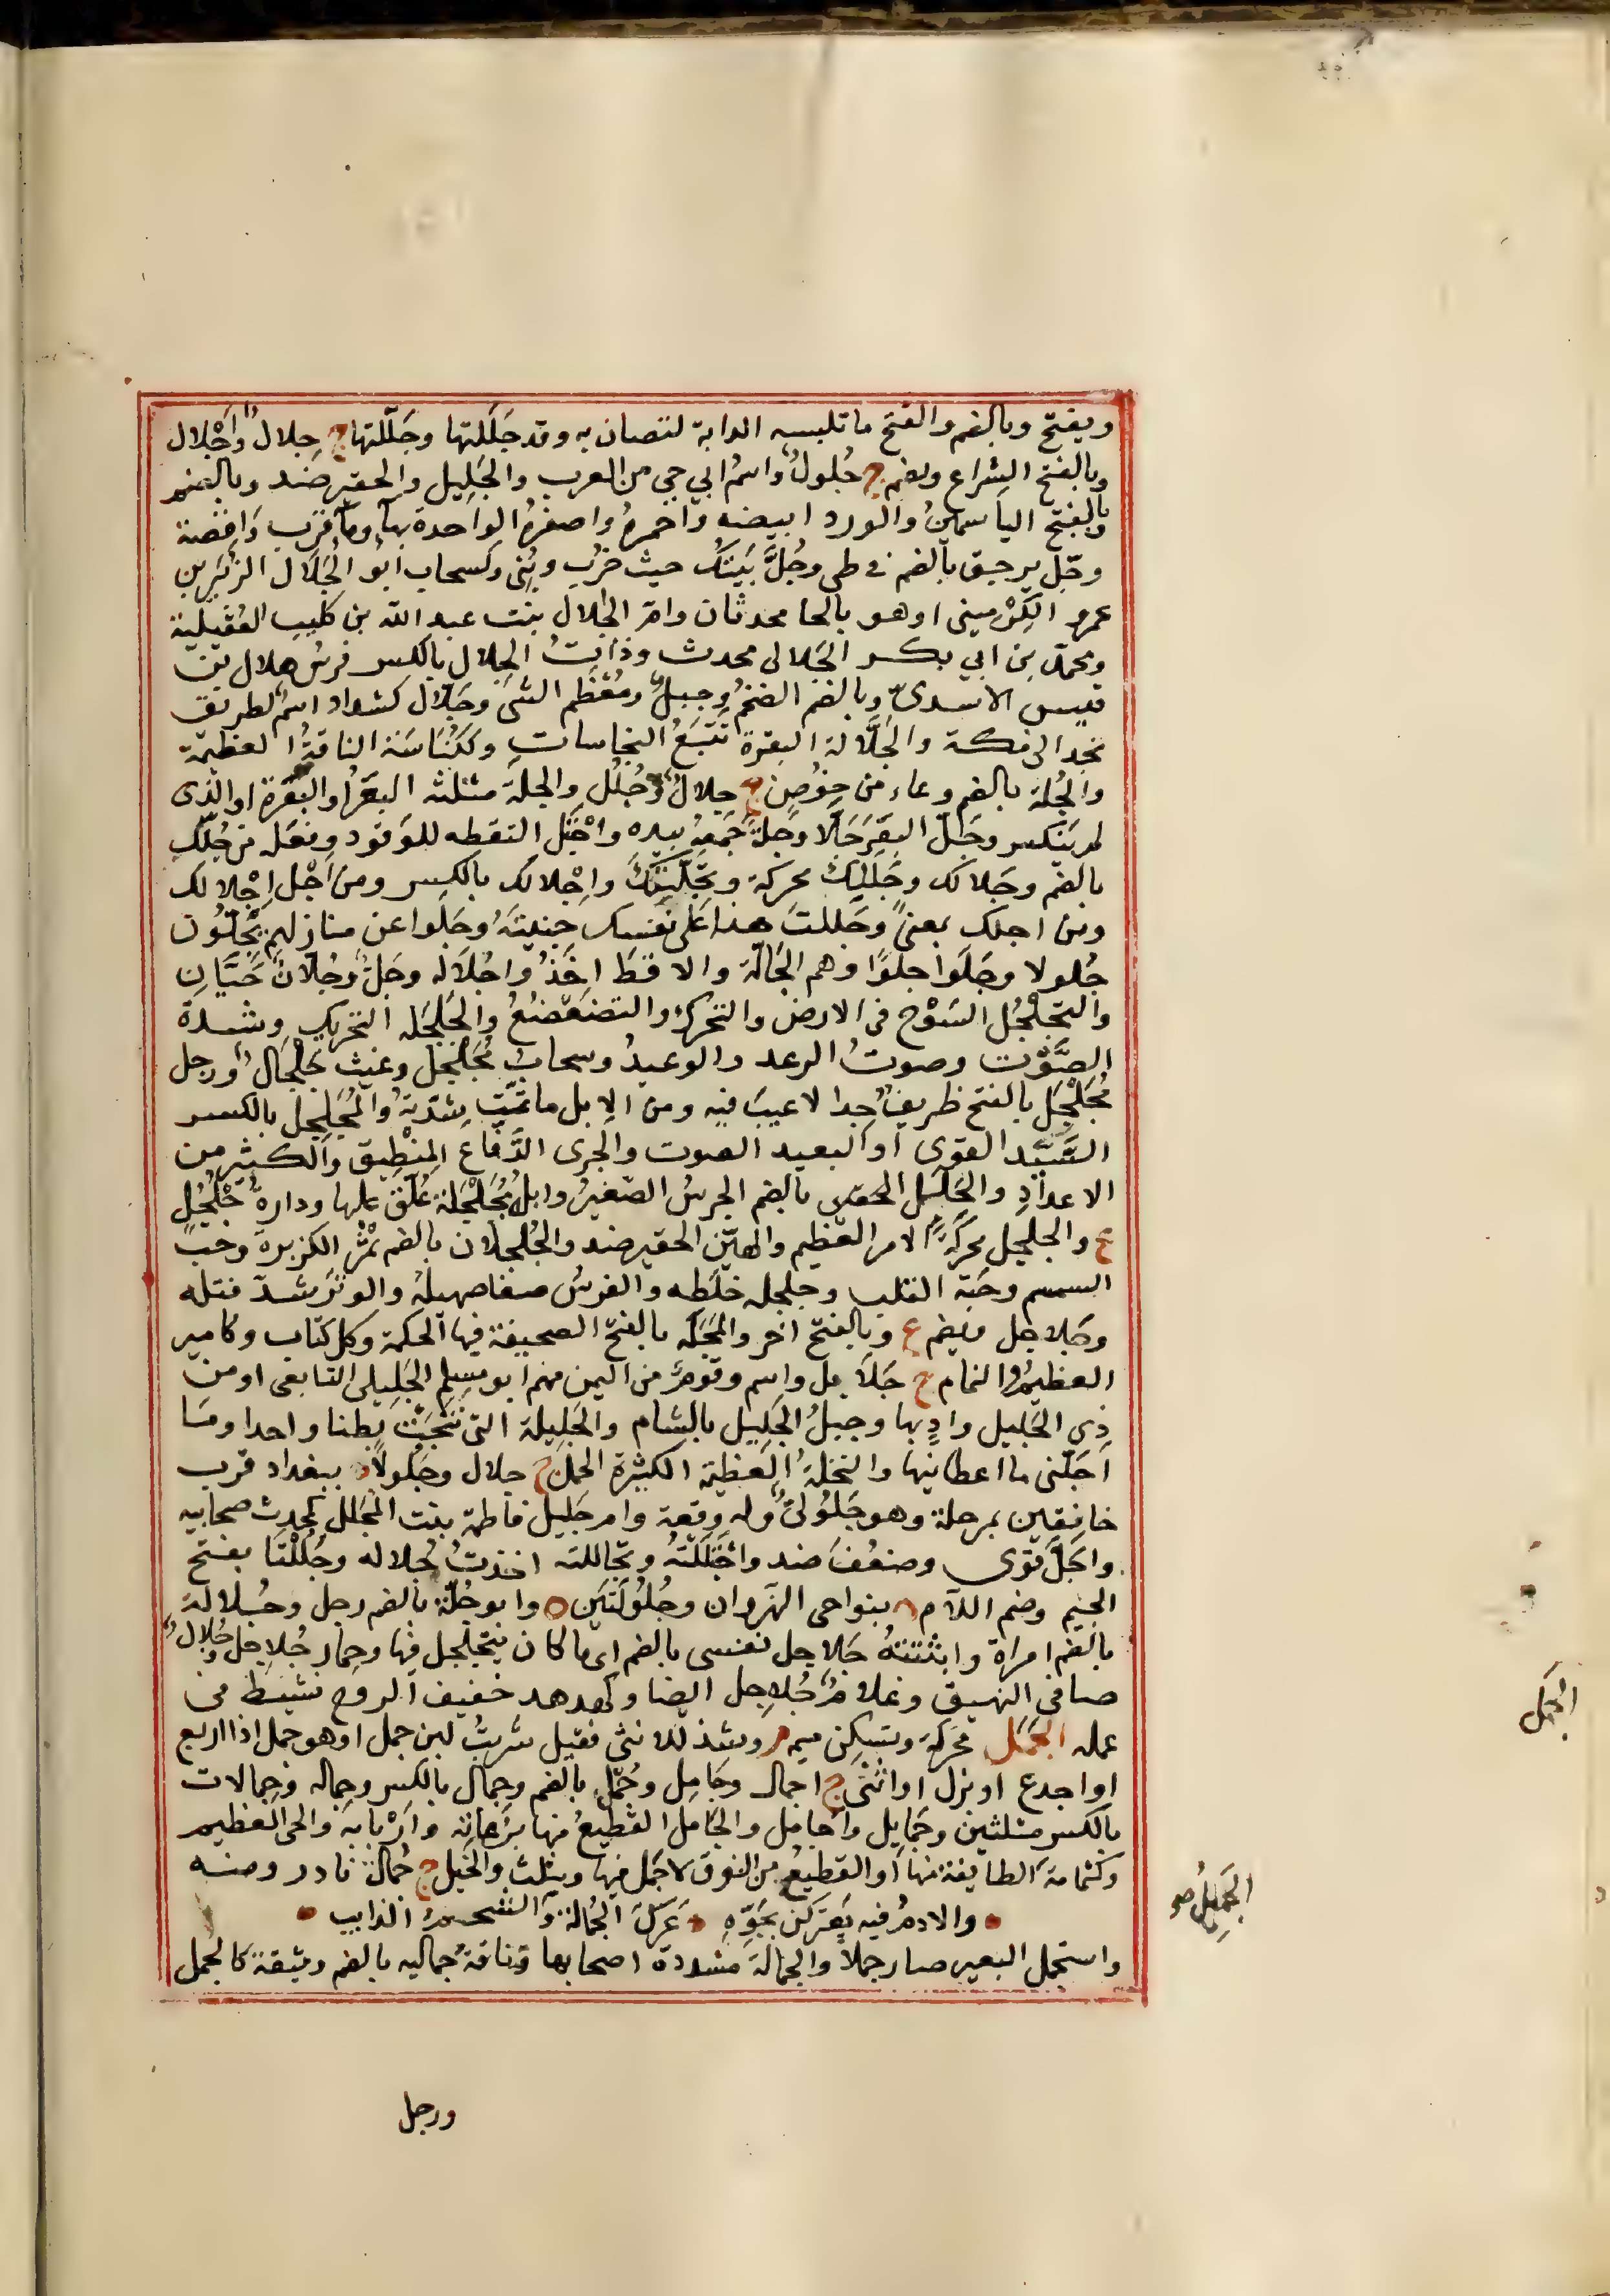 ويفتح وبالضم والفتح ما تلبسه الدابة لتصان به وقد جَلَلتها وجَلّلتها ج جِلال وأجْلال
وبالفتح الشراع ويضم ج جُلولٌ واسمُ ابي حي من العرب والجَلِيل والحقير ضد وبالضم
وبالفتح الياسمينُ والورد ابيضه واحمرهُ واصفرهُ الواحدة بهاء وماء قرب واقصة
وجَلّ بن حِق بالضم في طي وجُلّ بَيْتك حيث ضُرب وبُنى وكسحاب ابو الجَلَال الزبير بن
عمرو الكِرْمينى او هو بالحا محدثان وام الجَلال بنت عبد الله بن كليب العُقيلية
ومحمد بن ابي بكر الجَلالى محدث وذاتُ الجِلال بالكسر فرسُ هلال بن
قيس الاسدىّ وبالضم الضخمُ وجبلٌ ومُعْظَم الشى وجَلّال كشداد اسمٌ لطريق
نجد الى مكة والجَلَّالة البقرة تَتَبَعُ النجاسات وككُنَاسَة الناقةُ العظيمة
والجُلة بالضم وعاء من خوُصٍ ج جِلالٌ وجُلَل والجلة مثلثه البَعَرُ او البَعْرَة او الذى
لم ينكسر وجَلّ البَعَرَ جَلّا وجَلةً جَمَعَهُ بيده واجْتَلّ التقطه للوَقود وفعَله من جُلّك
بالضم وجَلالك وجَلَلِكَ محركة وتَجِلَّتِكَ واِجْلالك بالكسر ومن اَجْل اِجْلالك
ومن اجلك بمعنىً وجَللتَ هذا على نَفسك جنيتَهُ وجَلّوا عن منازلهم يَجُلّوُن
جُلولا وجَلَوا جلوًا وهم الجَالّة والاقط اخَذُوا جُلاله وجَلٌّ وجُلّانُ حَيَّان
والتجلْجُل السَّوْخ فى الارض والتحرك والتضعْضُعُ والجَلجَله التحريك وشدة
الصَّوْت وصوتُ الرعد والوعيدُ وسحابُ مُجَلْجِل وغيث جَلْجَالٌ ورجل
مُجَلْجَل بالفتح ظريفٌ جدا لا عيبَ فيه ومن الابل ما تمّت شِدّتهُ والمُجَلجِل بالكسر
السَّيِّد القوى او البعيد الصوت والجرى الدَّفّاع المِنْطِيق والكثير من
الاعدادِ والجُلجُل بالضم الجرسُ الصّغيرُ وابلٌ مُجَلْجَلة عُلّق عليها ودارة جُلْجُلٍ
ع والجلجل محركةً الامر العظيم والهيّن الحقير ضد والجُلجلان بالضم ثَمَرُ الكزبرة وحبّ
السمسم وحَبّة القلب وجلجله خلَطه والفرسُ صفا صهيلهُ والوتَرَ شدّ فتله
وجَلاجل ويضم ع وبالفتح اخر والمَجَلّه بالفتح الصحيفة فيها الحكمة وكل كتاب وكامير
العظيمُ والثمام ج جَلَايل واسم وقومٌ من اليمن منهم ابو مسلم الجَلِيلى التابعى او من
ذِى الجَليل وادٍ بها وجبلُ الجَلِيل بالشام والجَلِيلة التى نُتجَتْ بطنا واحدا ومَا
اجَلّنى ما اعطانيها والنخلةُ العَظيمة الكثيرة الحمل ج جلال وجَلُولَاء ببغداد قرب
خانِقين بمرحلة وهو جَلُولىٌّ وله وقعة وام جَليل فاطمة بنت المُجَلِل كمُحدث صحابيه
واجَلّ قَوى وضعُفَ ضد واجْتَلَلْتُهُ وتجاللته اخذتُ جُلاله وجُللْتَا بفتح
الجيم وضم اللام ه بنواحى النهروان وجُلُولَتَين ه وابو جُلّة بالضم رجل وجُلالةُ
بالضم امراة وابْثَثتهُ جَلاجل نفسى بالضم اى ما كان يتجلجل فيها وحِمار جُلاجل وجُلال
صافى النهيق وغلامٌ جُلاجل ايضا وكهدهد خفيف الروح نشيط فى
عمله الجَمَل محَركة وتسكن ميمه وشذ للانثى فقيل شربتُ لبن جمل او هو جمل اذا اربع
او اجدع او بزل او اثنى ج اجمال وجَامِل وجُمّل بالضم وجِمال بالكسر وجِماله وجِمالات
بالكسر مثلثين وجَمايل واَجامِل والجَامل القطيعُ منها برُعاتِه وارْبَابِه والحى العظيم
وكثمامة الطايفة منها او القطيعُ من النوق لا جَمل فيها ويثلث والخَيل ج جُمال نادر ومنه
والادمُ فيه يَعترَكن بجَوّهِ عَركَ الجُمالة الذابيب
واستجمل البعير صار جملاً والجمالة مشددة اصحابها وناقةٌ جماليه بالضم وثيقة كالجمل
ورجل
الجَمل
الجَمِيلُ صو